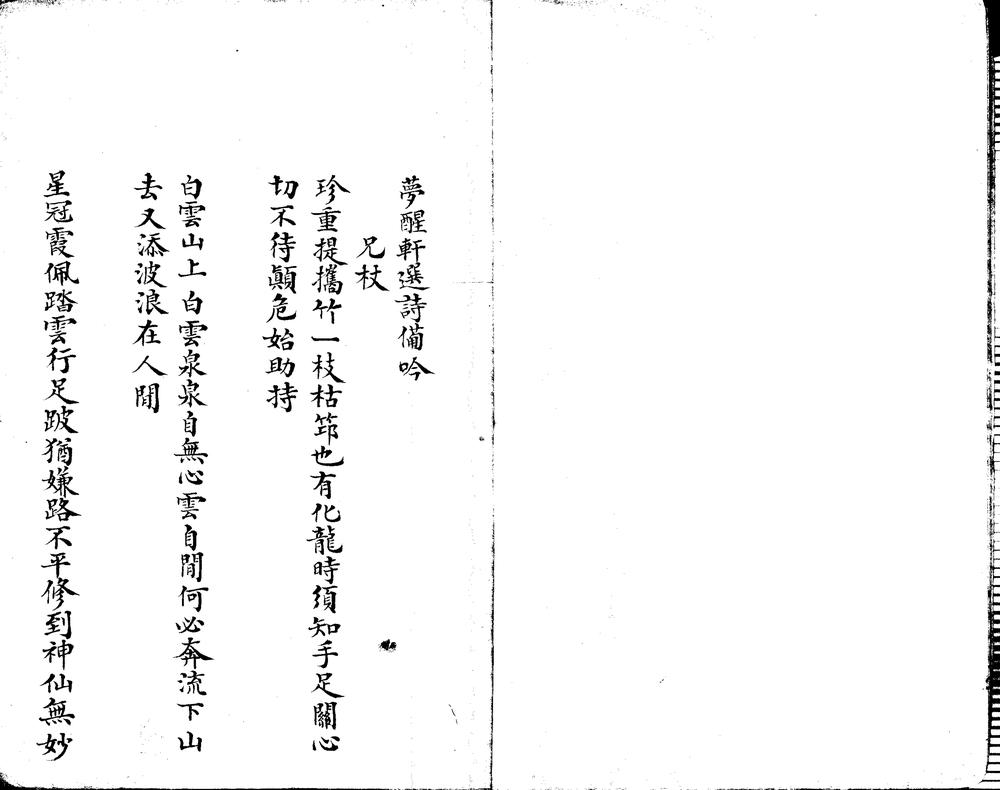 夢醒軒選詩備吟
兄杖
珍重提攜竹一枝枯筇也有化龍時須知手足關心
切不待顛危始助持
白雲山上白雲泉泉自無心雲自閒何必奔流下山
去又添波浪在人間
星冠霞佩踏雲行足跛猶嫌路不平修到神仙無妙